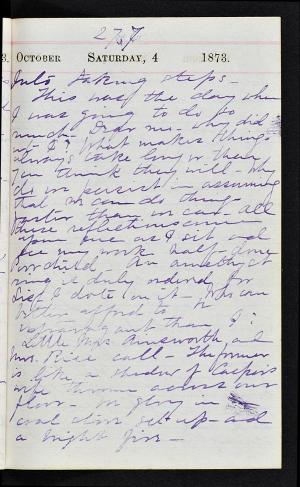 277
3. OCTOBER SATURDAY, 4 1873.
into taking steps.
This was the day when
I was going to do so
much. Dear me - why did
not I? What makes things
always take longer than
you think they will - why
do we persist in assuming
that we can do things
faster than we can - All
these reflections come
upon one as I sit and
see my work half done
Poor child. An amethyst
ring is duly ordered for
I dote on it. Who can
better afford to be
extravagant than I?
Little Mrs. Ainsworth and
Mrs. Rice call - The former
is like a shadow of
were thrown across our
floor. We glory in
coal stove set up - and
a bright fire -